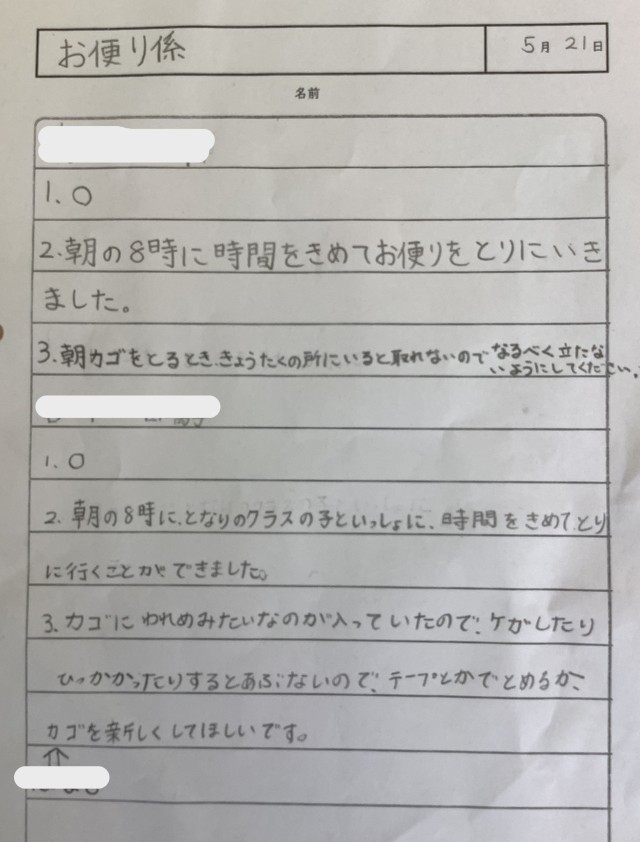 お便り係
5月 21日
名前
1.○
2.朝の8時に時間をきめてお便りをとりにいき
ました。
3.朝カゴをとるとき、きょうたくの所にいると取れないので なるべく立たな
いようにしてください。
1.○
2.朝の8時に、となりのクラスの子といっしょに、時間をきめてとり
に行くことができました。
3.カゴに われめみたいなのが入っていたので、ケガしたり
ひっかかったりするとあぶないので、テープとかでとめるか、
カゴを新しくしてほしいです。
↑